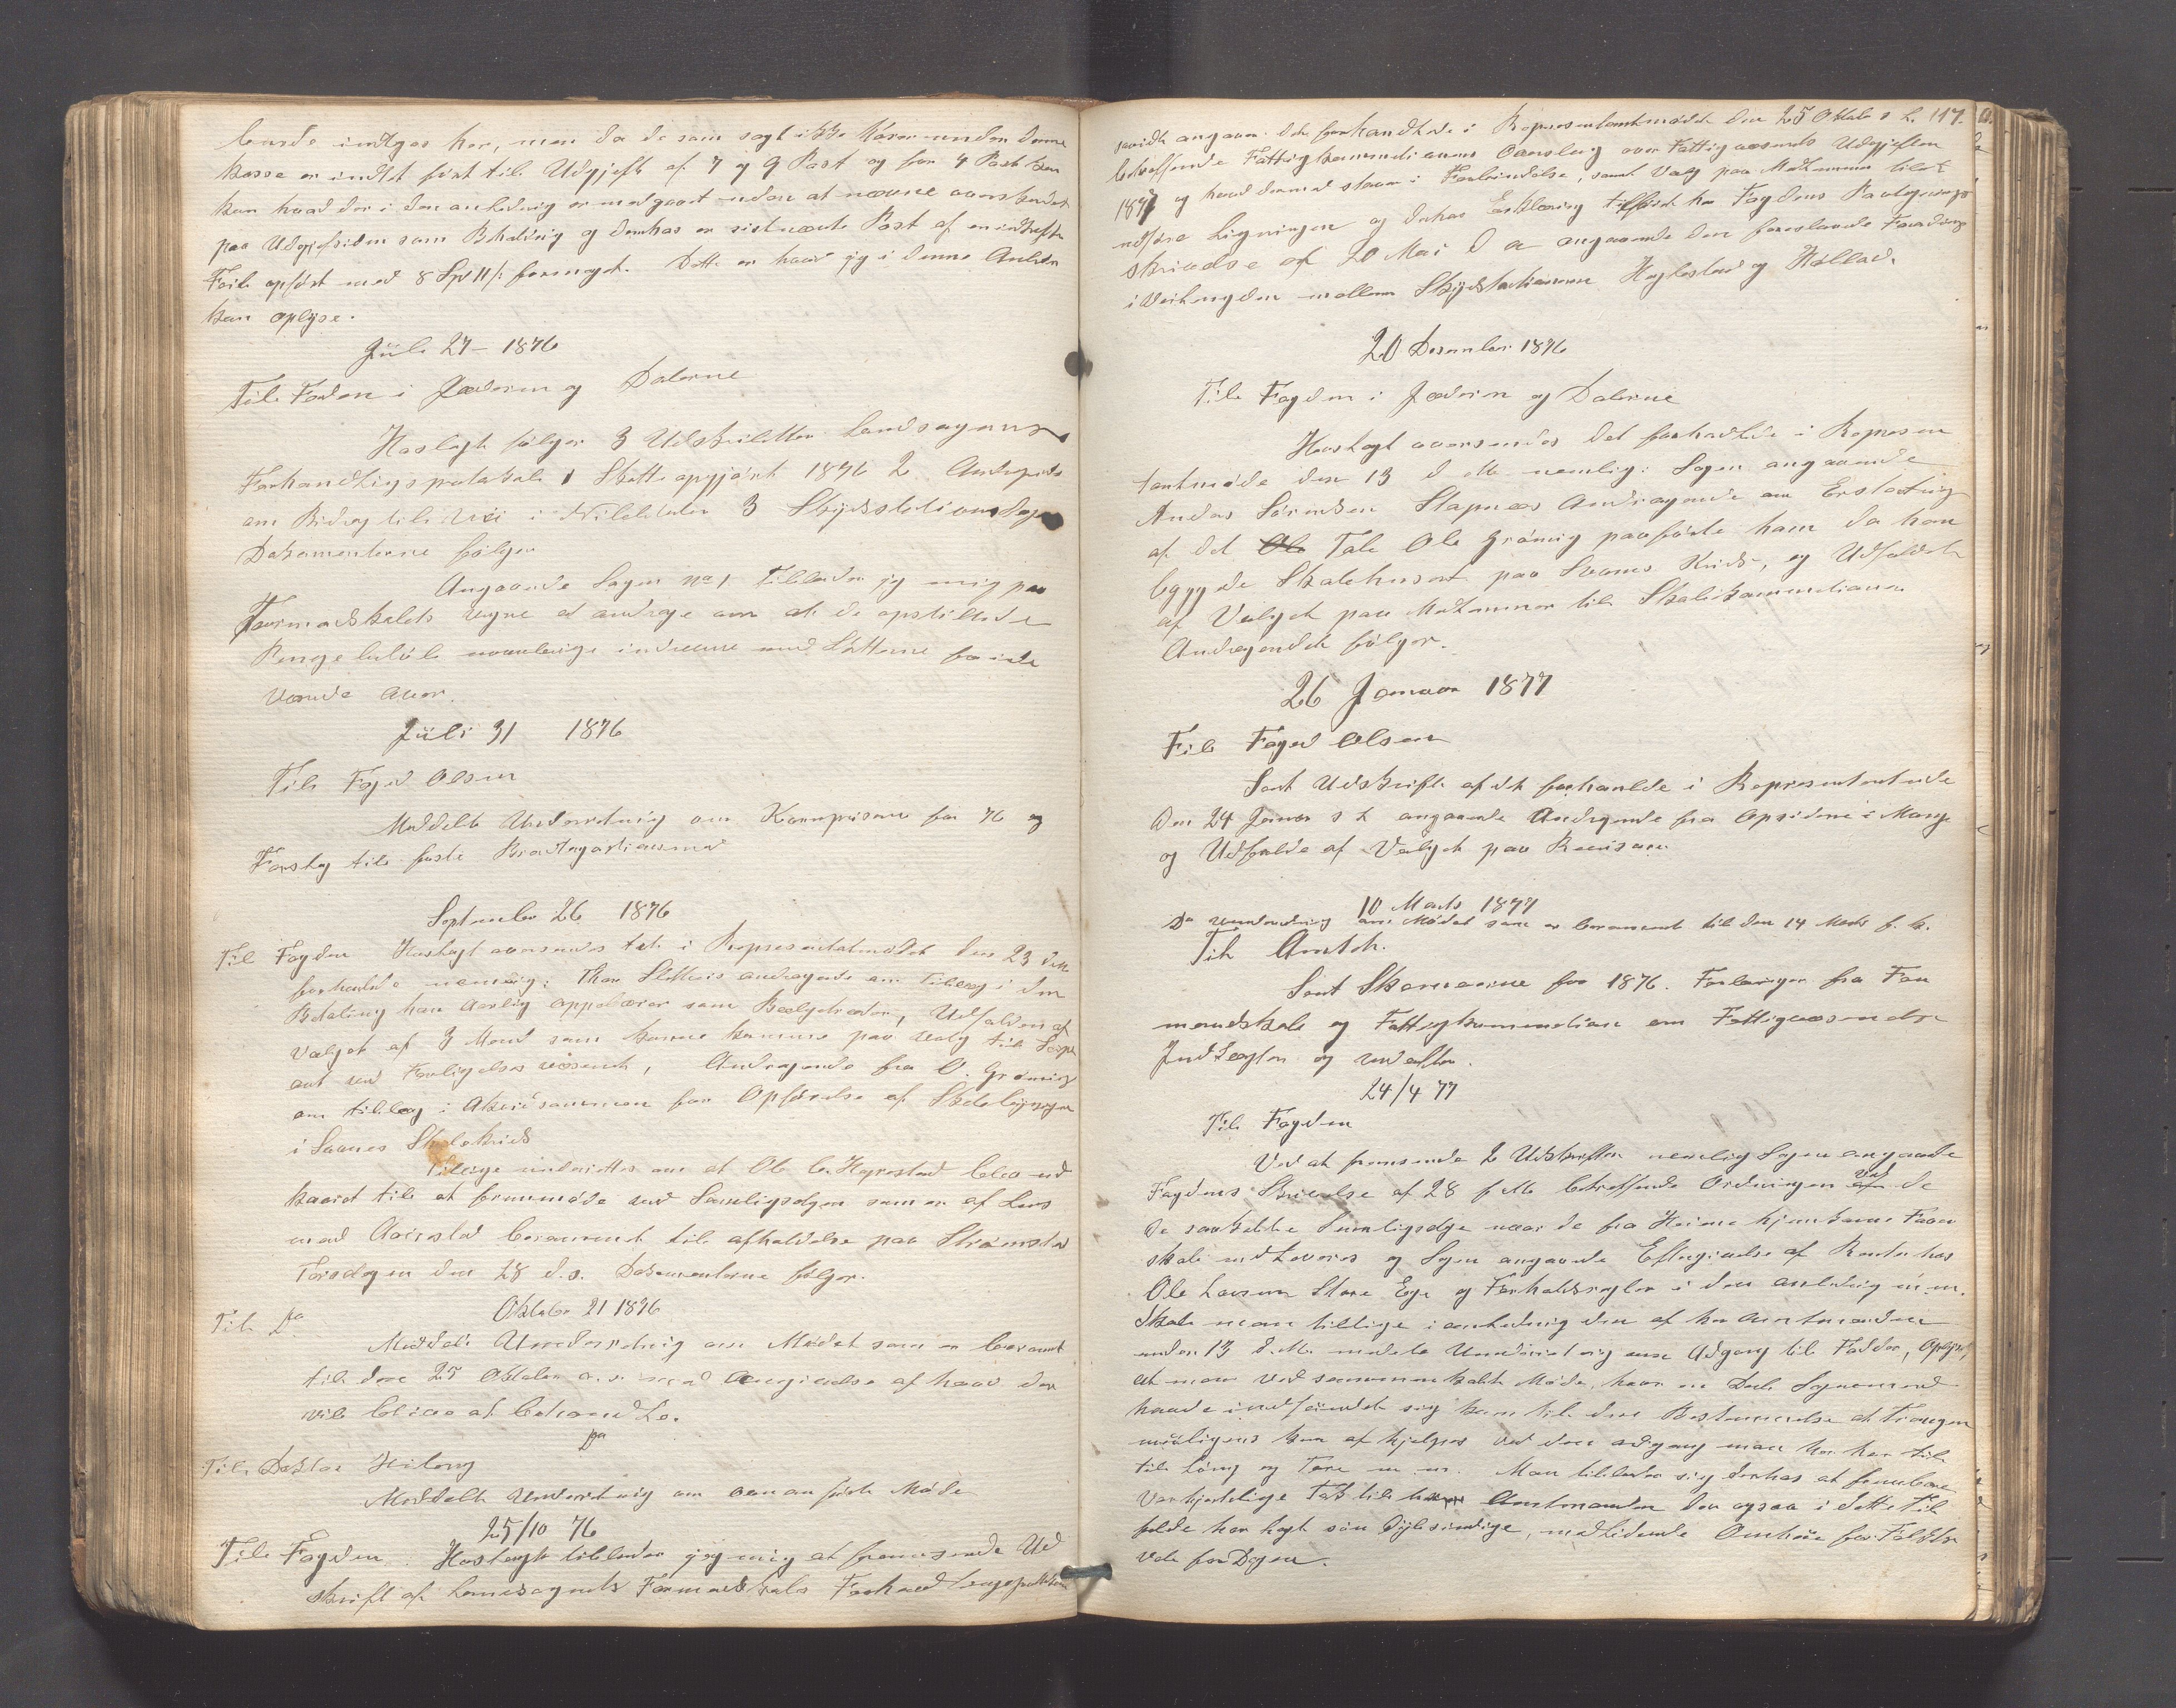 burde indtges her, men da de som sagt ikke hører under denne
Kasse er indtet ført til Udgjift af 7 og 9 Post og for 4 Post kun
kun hvad der i den anledning er medgaaet uden at nævne overskudet
paa Udgjiftsiden som Behalding og derhos er sistnævte Post af en indtruffen
Feil opført med 8 Spd 11 s: formeget. Dette er hvad jeg i denne Anledn
kan oplyse.
Juli 27 - 1876
Til Foden i Jæderen og Dalerne
Hoslagt følger 3 Udskrifter Landsogns
Forhandligsprotokol 1 Skatteopgjørt 1876 2 Andragende
om Bidrag til Vei i 3 Skydsstations
Dokumenterne følger
Angaaende Sagen No 1 Tillader jeg mig paa
Formadskalets vegne at andrage om at de opstillede
Pengebeløb indrevne med Skatterne for inde
værende Aar.
Juli 31 1876
Til Foged Olsen
Meddelt Underretning om Kornprisene for 76 og
Forslag til faste
September 26 1876
Til Fogden Hoslagt oversendes det i Representatmødet den 23 dn
forhandlde nemlig: Thor andragende om Tillæg i den
Betaling han aarlig oppebærer som Bælgtræder, Udfalden af
Valget af 3 Mend som kunne komme paa valg til
ved Forligelses væsenet, Andragende fra O. Grønnig
om tillæg i Akordsummen for Opførelse af Skolebygnigen
i Svanes Skolekreds
Tillige underrettes om at Ole Hegrestad blev ud
kaaret til at fremmøde ved Samligsdgen som er af Lens
mand Aarrestad berammet til afholdelse paa Strømstad
Torsdagen den 28 d.s. Dokumenterne følger.
Til Do Oktober 21 1876
Meddelt Underretnig om Mødet som er berammet
til den 25 Oktober med Angivelse af hvad der
vil blive at behandle.
Do
Til Doktor
Meddelt Underretnig om ovenanførte Møde
25/10 76
Til Fogden. Hoslagt tillader jeg mig at fremsende Ud
skrift af Landsognets Formadskals Forhandlingsprotokol
saavidt angaar det forhandlede i Representantmødet den 25 Oktob s L. 117.
betreffende Fattigkommisionens Overslag over Fattigvæsenets Udgjifter
1877 og hvad dermed staar i Forbindelse, samt Valg paa Medlemmer til at
udføre Ligningen og derhos Erklæring tilført hr Fogdens Paategnings
skrivelse af 20 Mai d a angaaende den foreslaaede Forandring
i Veilengden mellem Skydsstationerne Hegrestad og Holland.
20 Desember 1876
Til Fogden i Jæderen og Dalerne
Hoslagt oversendes det forhandlde i Represen
tantmøde den 13 d Mts nemlig: Sagen angaaende
Andas Sørensen Slapness Andragende om Erstatning
af det Tab Ole Grønnig paaførte ham da han
byggede Skolehuset paa Svanes Kreds, og Udfaldet
af Valget paa Medlemmer til Skolekommitionen
Andragendet følger.
26 Januar 1877
Til Foged Olsen
Sent Udskrift af det forhanlde i Representantmøde
den 24 Januar angaaende Andragende fra
og Udfalde af Valget paa Revisorer
10 Marts 1877
Do underretning om Mødet som er berammet til den 14 Marts
Til Amtet.
Sent Skemaerne for 1876. Forlaringer fra For
mandskab og Fattigkommission om Fattigvæsendets
Indtægter og
24/4 77
Til Fogden
Ved at fremsende 2 Udskrifter nemlig Sagen angaaende
Fogdens Skrivelse af 28 f Mts betreffende Ordningen ved de
de saakaldte Samligsdage naar de fra Heime hjemkomne Faar
skal udleveres og Sagen angaaende Eftergivelse af Renter hos
Ole Larsen Store Ege og Forholdsregler i den anledning m.m.
Skal man tillige i anledning den af hr Amtmanden
under 13 d. M. medelte Underretnig om Adgang til Fødder, Oplyse,
at man ved sammenkaldt Møde, hvor en Del Sognemænd
havde indfundet sig kom til den Bestemmelse at Trangen
muligens kan af hjelpes ved den adgang man har her til
til Løng og Tare m.m. Man tillader sig derhos at frembære
Verhjertelige Tak til Amtmanden der ogsaa i dette Til
felde har lagt sin medlidende Omhue for Folkets
Vel for Dagen.